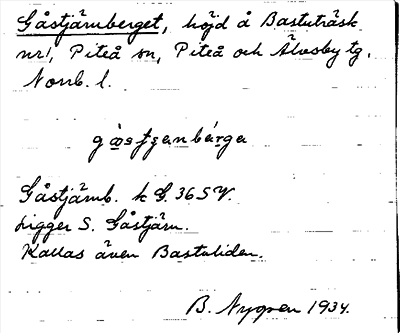 Gåstjärnberget, höjd å Bastuträsk
nr1, Piteå sn, Piteå och Älvsby tg,
Norrb. l.
Gåstjärnb. k G. 36 S V.
Ligger S. Gåstjärn.
Kallas även Bastuliden.
B. Nygren 1934.